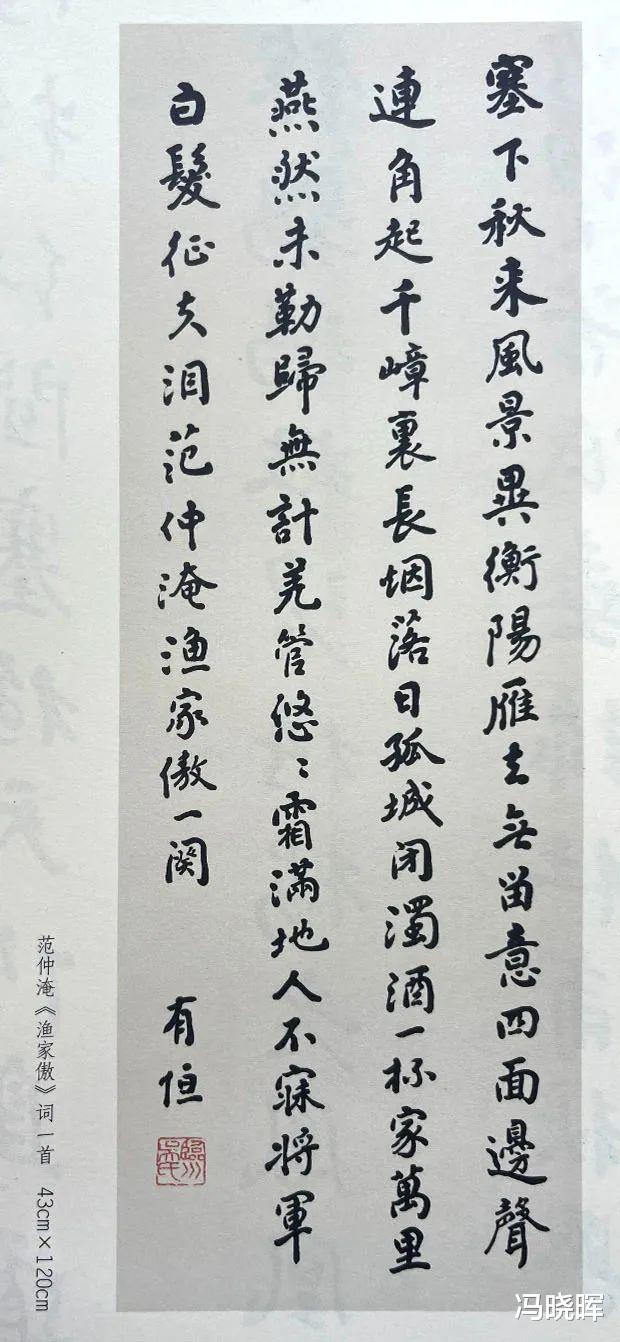 塞下秋来風景異衡陽雁去無留意四面邊聲
連角起千嶂裏長烟落日孤城闭濁酒一杯家萬里
燕然未勒歸無計羌管悠〻霜滿地人不寐将軍
白髮征夫泪范仲淹渔家傲一阕
有恒
范仲淹《渔家傲》词一首 43cm×120cm
冯晓晖